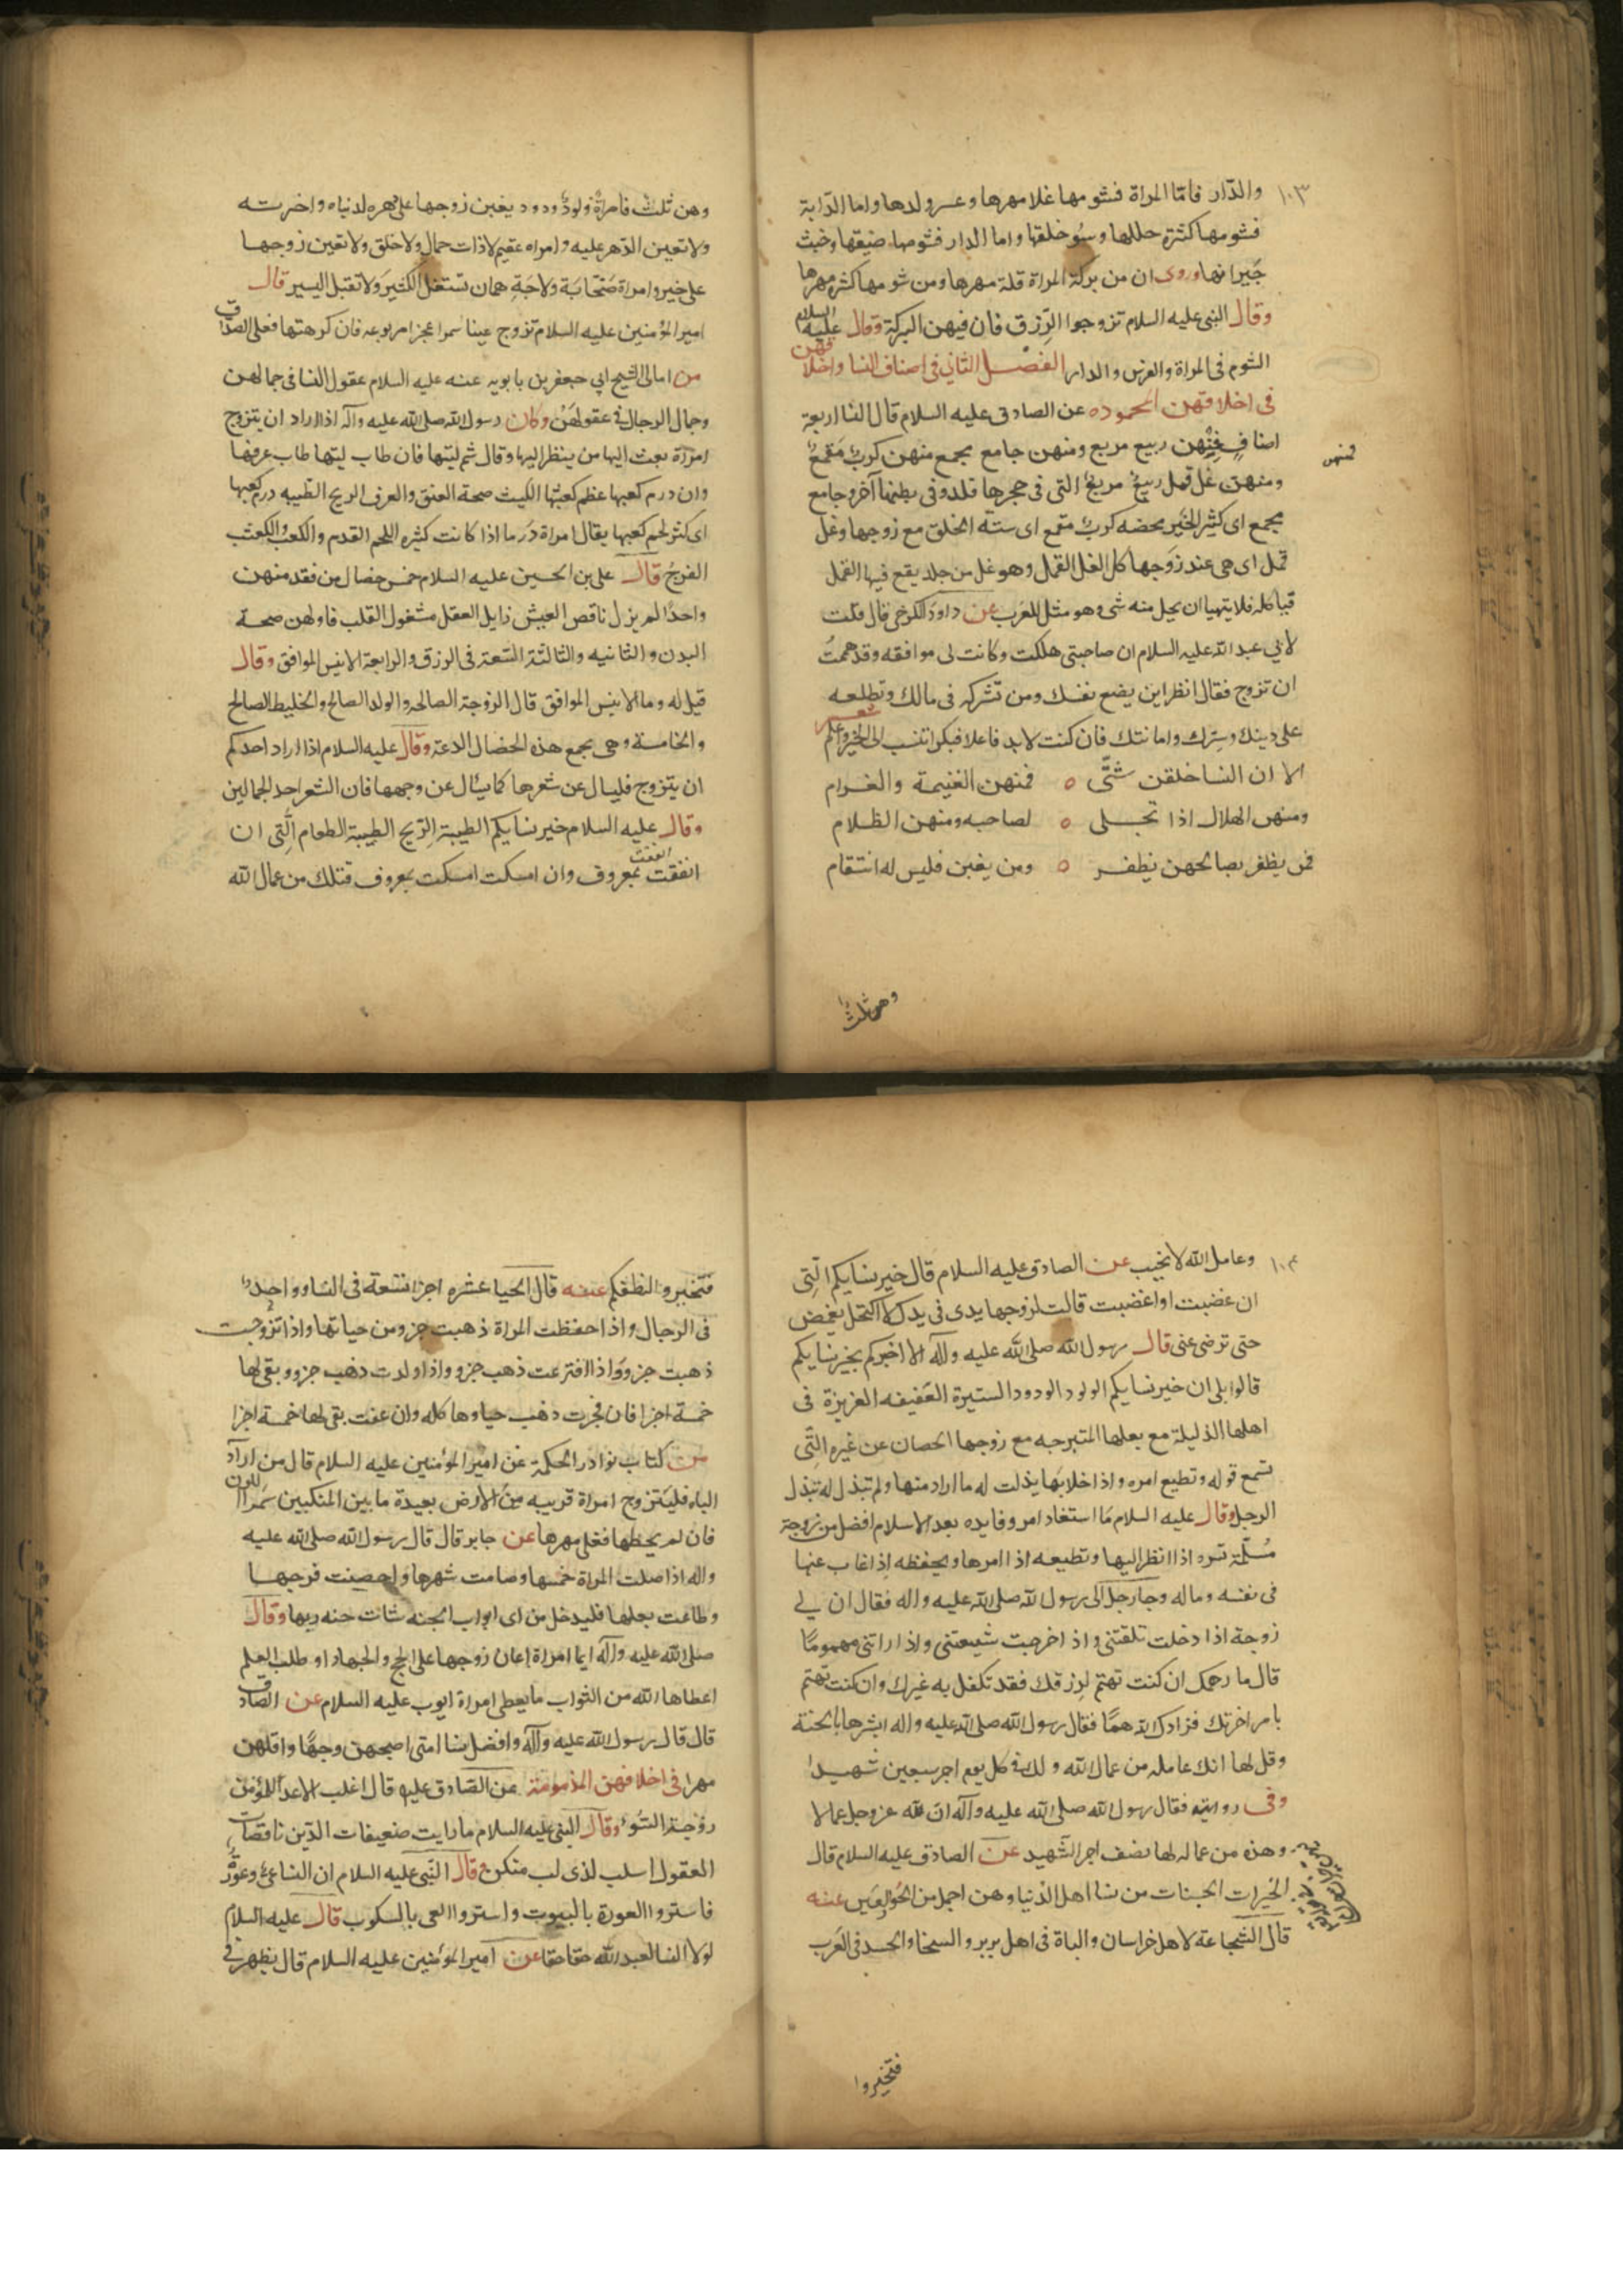 ١٠٣
والدّار فامّا المراة فشومها غلا مهرها وعسر ولدها واما الدّابة
فشومها كثرة حللها وسُو خلقها واما الدار فشومها ضيقها وخبث
جَيرانها وروى ان من بركة المراة قلة مهرها ومن شومها كثرة مهرها
وقال النبى عليه السلام تزوجوا الرّزق فان فيهن البركة وقال عليه السلام
الشوم فى المراة والفرس والدار الفصل الثانى فى اصناف النسا واخلاقهن
فى اخلاقهن المحموده عن الصادق عليه السلام قال النسا اربعة
اصناف فمنهن ربيع مربع ومنهن جامع مجمع منهن كرب مقمع
فمنهن
ومنهن غل قمل ربيع مربع التى فى حجرها ولد وفى بطنها آخر وجامع
مجمع اى كثير الخير محصنه كرب مقمع اى سيئة الخلق مع زوجها وغل
قمل اى هى عند زوجها كالغل القمل وهو غل من جلد يقع فيها القمل
فياكله فلا يتهيا ان يحل منه شى وهو مثل للعَرب عن داود الكرخى قال قلت
لابي عبد الله عليه السلام ان صاحبتى هلكت وكانت لى موافقه وقد هممتُ
ان تزوج فقال انظر اين يضع نفسك ومن تشركه فى مالك وتطلعه
على دينك وسرّك وامانتك فان كنت لابد فاعلا فبكرا تنسب الى الخير واعلم شعر
الا ان النسا خلقن شتّى ه فمنهن الغنيمة والغرام
ومنهن الهلال اذا تجلى ه لصاحبه ومنهن الظلام
فمن يظفر بصالحهن يظفر ه ومن يغبن فليس له انتقام
وهن ثلث
وهن ثلث فامراةٌ ولودٌ ودود يعين زوجها على دهره لدنياه واخرته
ولا تعين الدّهر عليه وامراه عقيم لا ذات جمال ولا خلق ولا تعين زوجها
على خير وامراة صَخّابَة ولاجَةٍ همان تستقل الكثيرَ ولا تقبل اليسير قال
امير المؤمنين عليه السلام تزوج عينا سمرا عجزا مربوعه فان كرهتها فعلى الصداق
من امالى الشيخ ابي جعفر بن بابويه عنه عليه السلام عقول النسا فى جمالهن
وجمال الرجال فى عقولهن وكان رسول الله صلى الله عليه وآله اذا اراد ان يتزوج
امراة بعث اليها من ينظر اليها وقال شم ليتها فان طاب ليتها طاب عرفها
وان درم كعبها عظم كعثبها الليث صحة العنق والعرف الريح الطيبه درم كعبها
اى كثر لحم كعبها يقال امراة دَرما اذا كانت كثيره اللحم القدم والكعب والكعثب
الفرج قال على بن الحسين عليه السلام خمس خصال من فقد منهن
واحدًا لم يزل ناقص العيش زايل العقل مشغول القلب فاولهن صحة
البدن والثانيه والثالثة السّعة فى الرزق والرابعة الانيس الموافق وقال
قيل له وما الانيس الموافق قال الزوجة الصالحه والولد الصالح والخليط الصالح
والخامسة وهى يجمع هذه الخصال الدعة وقال عليه السلام اذا اراد احدكم
ان يتزوج فليسال عن شعرها كما يسال عن وجهها فان الشعر احد الجمالين
وقال عليه السلام خير نسايكم الطيبة الرّيح الطيبة الطعام الّتى ان
انفقت انفقت بمعروف وان امسكت امسكت بمعروف فتلك من عمال الله
١٠٤
وعامل الله لا يخيب عن الصادق عليه السلام قال خير نسايكم الّتى
ان غضبت او اغضبت قالت لزوجها يدى فى يدك لا اكتحل بغمض
حتى ترضى عنى قال رسول الله صلى الله عليه وآله الا اخبركم بخير نسايكم
قالوا بلى ان خير نسايكم الولود الودود الستيرة العَفيفه العزيزة فى
اهلها الذليلة مع بعلها المتبرجه مع زوجها الحصان عن غيره الّتى
تسمع قوله وتطيع امره واذا خلا بها بذلت له ما اراد منها ولم تبذل له تبذل
الرجل وقال عليه السلام مَا استفاد امرو فايده بعد الاسلام افضل من زوجة
مُسلمة تسره اذا نظر اليها وتطيعه اذا امرها ويحفظه اذا غاب عنها
فى نفسه وماله وجا رجل الى رسول الله صلى الله عليه واله فقال ان لى
زوجة اذا دخلت تلقتنى واذ اخرجت شيعتنى واذا راتنى مهمومًا
قال ما رحمك ان كنت تهتم لرزقك فقد تكفل به غيرك وان كنت تهتم
بامر اخرتك فزادك الله همًا فقال رسول الله صلى الله عليه واله ابشرها بالجنة
وقل لها انك عامله من عمال الله ولك فى كل يوم اجر سبعين شهيدا
وفى روايته فقال رسول الله صلى الله عليه وآله ان لله عز وجل عمالا
وهذه من عماله لها نصف اجر الشّهيد عن الصادق عليه السلام قال
الخيرات الحسنات من نسا اهل الدّنيا وهن اجمل من الحُور العين عنه
قال الشجاعة لاهل خراسان والباة فى اهل بربر والسخا والحسد فى العَرب
فتخيروا
فتخيروا لنطفكم عنه قال الحيا عشره اجزا فتسعة فى النسا وواحد
فى الرجال واذا حفظت المراة ذهبت جزو من حيائها واذا تزوجت
ذهبت جزو واذا افترعت ذهب جزو واذا ولدت ذهب جزو وبقى لها
خمسة اجزا فان فجرت ذهب حياوها كله وان عفت بقى لها خمسة اجزا
من كتاب نوادر الحكمة عن امير المؤمنين عليه السلام قال من اراد
الباه فليتزوج امراة قريبه من الارض بعيدة ما بين المنكبين سَمرا اللون
فان لم يحظها فعلى مهرها عن جابر قال قال رسول الله صلى الله عليه
واله اذا صلت المراة خمسها وصامت شهرها واحصنت فرجها
وطاعت بعلها فليدخل من اى ابواب الجنه شات جنه ربها وقال
صلى الله عليه وآله ايما امراة اعان زوجها على الحج والجهاد او طلب العلم
اعطاها الله من الثواب ما يعطى امراة ايوب عليه السلام عن الصادق
قال قال رسول الله عليه وآله وافضل نسا امتى اصبحهن وجهًا واقلهن
مهرا فى اخلاقهن المذمومة عن الصّادق عليه قال اغلب الاعدا للمؤمن
زوجة السّوء وقال النبى عليه السلام ما رايت ضعيفات الدّين ناقصات
العقول اسلب لذى لب منكن قال النّبى عليه السلام ان النسا عىّ وعورة
فاستروا العورة بالبيوت واستروا العى بالسكوت قال عليه السلام
لولا النسا لعبد الله حقا حقا عن امير المؤمنين عليه السلام قال يظهر فى